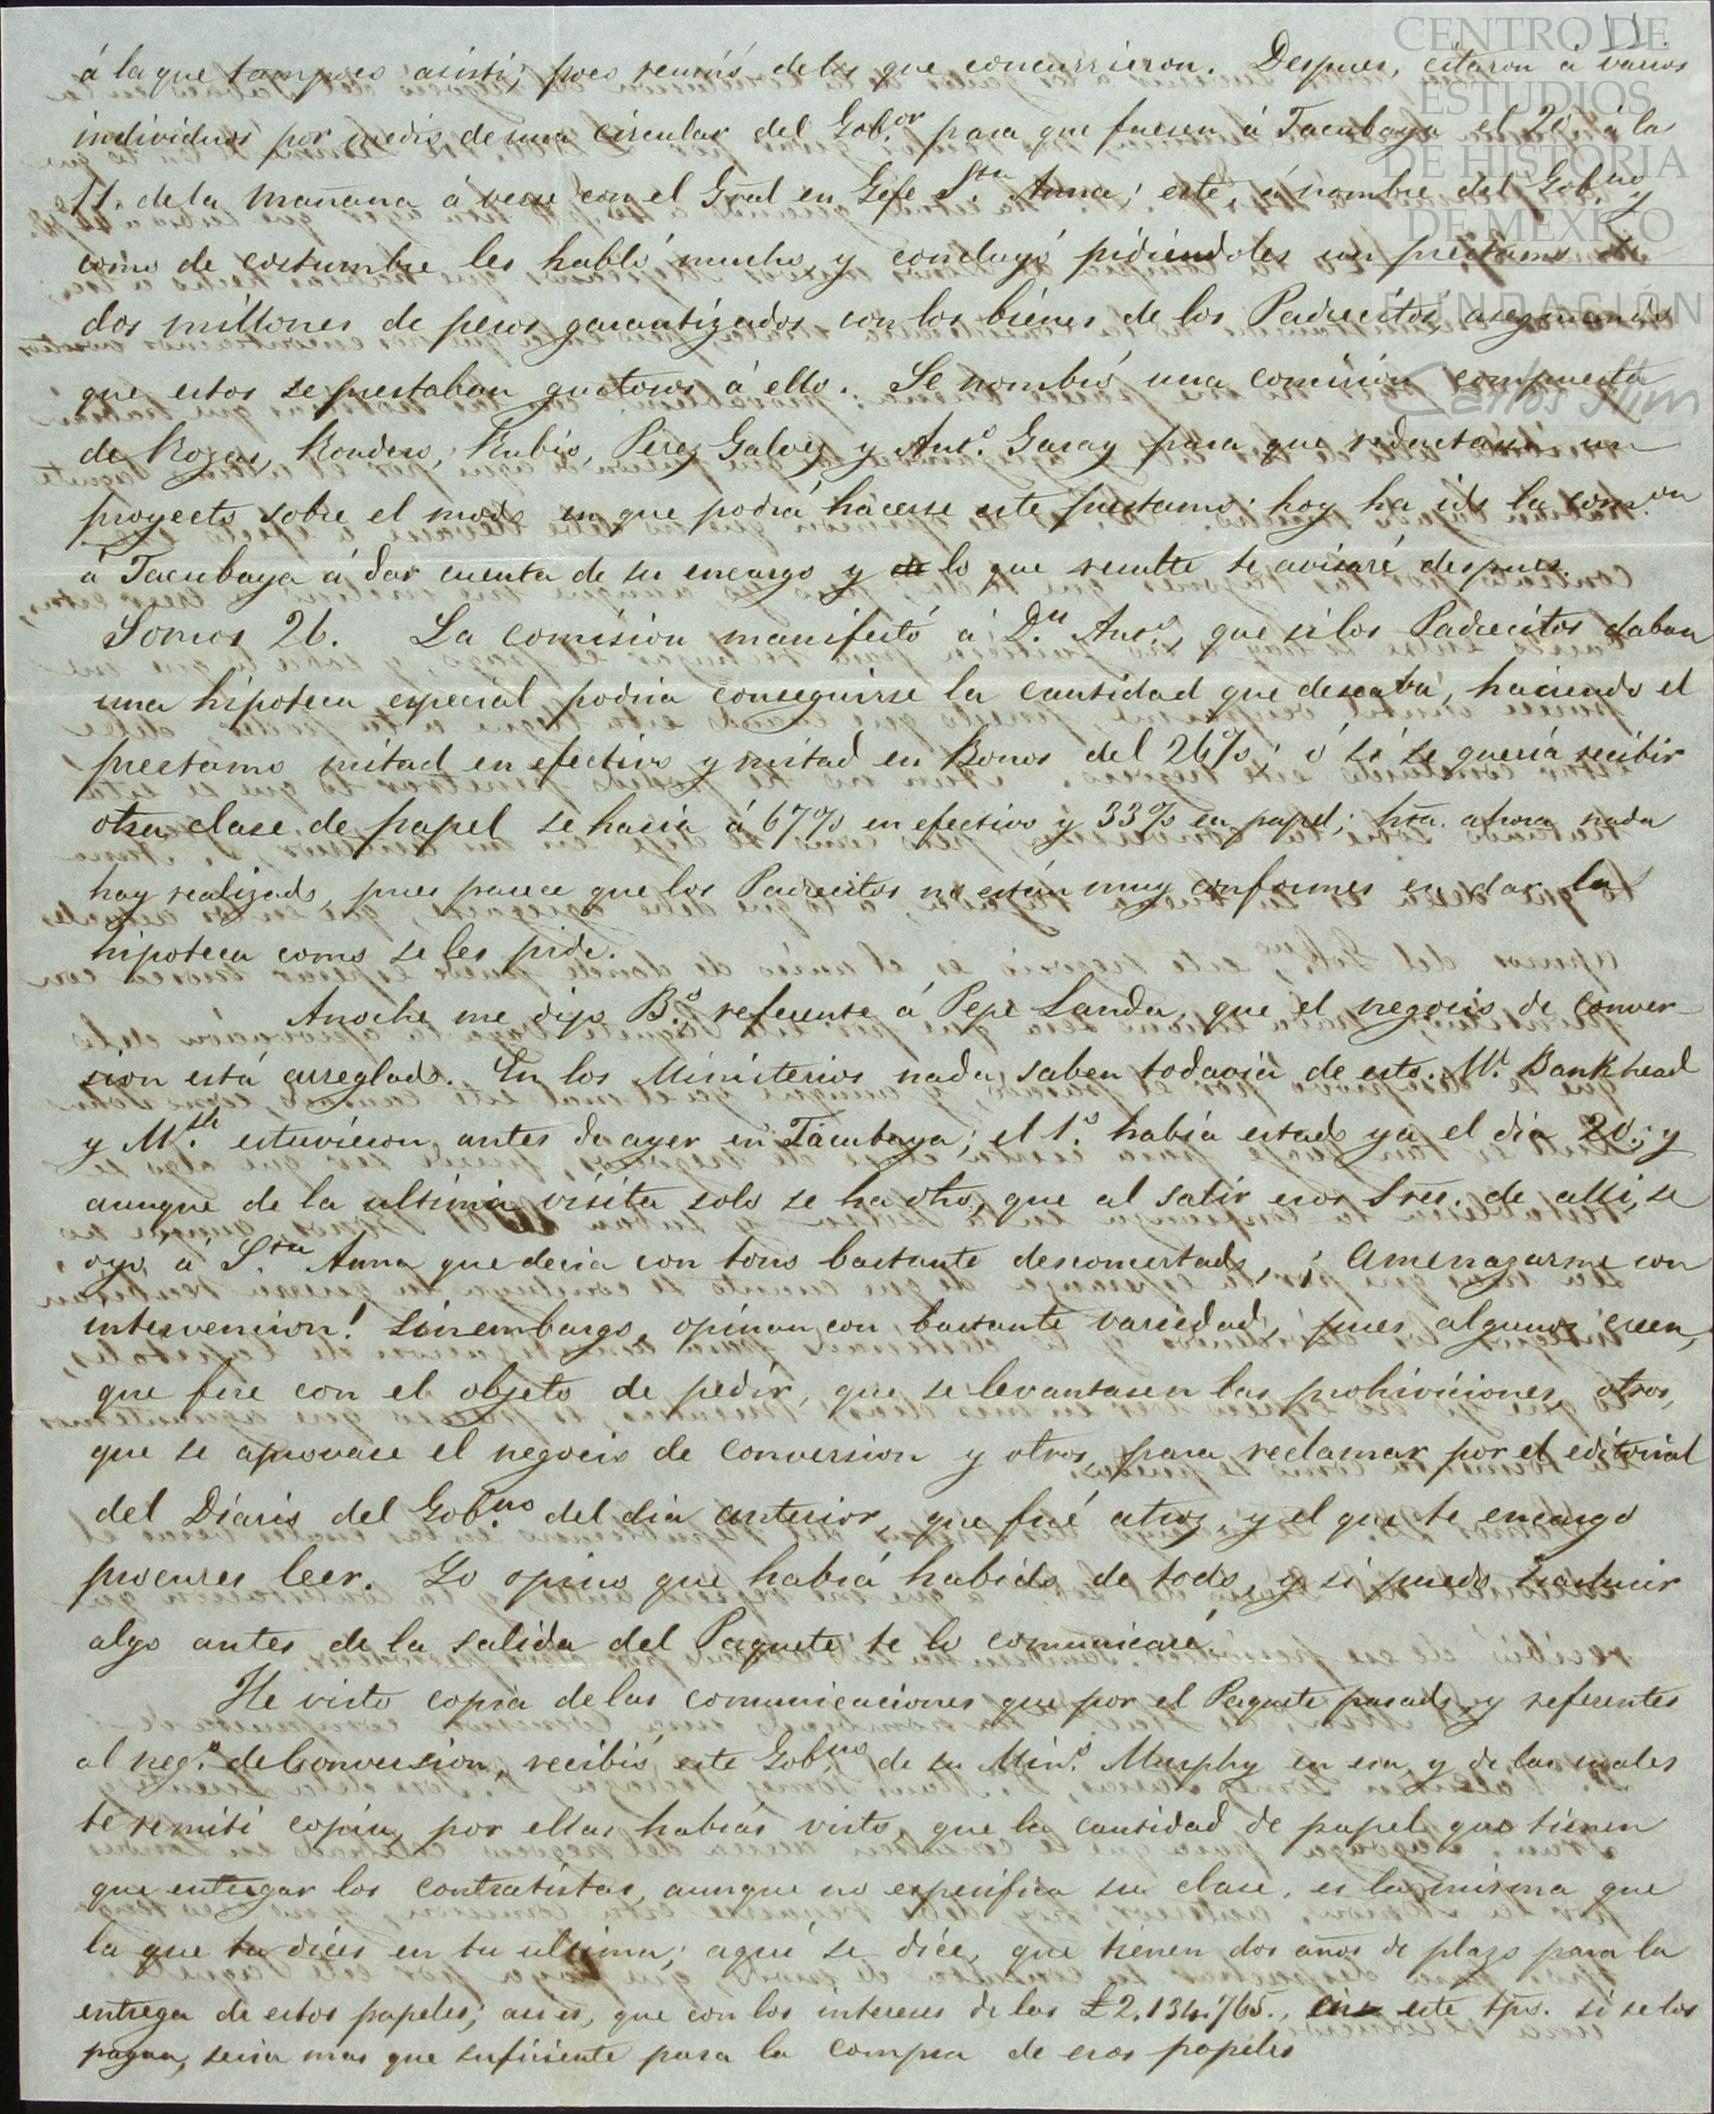 11.
CENTRO DE
ESTUDIOS
DE HISTORIA
DE MÉXICO
FUNDACIÓN
Carlos Slim
á la que tampoco asistí; pocos de los que concurrieron. Despues, citaron á varios
individuos por medio de una circular del Gob.or para que fuesen á Tacubaya el 20 á las
11. de la mañana á verse con el Gral en Gefe S.ta Anna; este, á nombre del Gob.no y
como de costumbre les habló mucho, y concluyó pidiendoles un prestamo de
dos millones de pesos garantizados con los bienes de los Padrecitos, asegurando
que estos se prestaban gustosos á ello. Se nombró una comision compuesta
de Rozas, Rondero, Rubio, Perez Galvez y Ant.o Garay para que redactara un
proyecto sobre el modo en que podrá hacerse este prestamo: hoy ha ido la com.on
á Tacubaya á dar cuenta de su encargo y de lo que resulte te avisaré despues.
Somos 26. La comision manifestó á D.n Ant.o, que si los Padrecitos daban
una hipoteca especial podria conseguirse la cantidad que deseaba, haciendo el
prestamo mitad en efectivo y mitad en Bonos del 26%; ó si se queria recibir
otra clase de papel se hacia á 67% en efectivo y 33% en papel; hta. ahora nada
hay realizado, pues parece que los Padrecitos no están muy conformes en dar la
hipoteca como se les pide.
Anoche me dijo B.o referente á Pepe Landa, que el negocio de conver-
sion está arreglado. En los Ministerios nada saben todavia de esto. Mr. Bankhead
y M.sh estuvieron antes de ayer en Tacubaya; el 1.o habia estado ya el dia 20; y
aunque de la ultima visita solo se ha dho, que al salir esos Sres. de alli, se
oyó á S.ta Anna que decia con tono bastante desconsertado, ¡Amenazarme con
intervencion! Sinembargo, opinan con bastante variedad, pues algunos creen,
que fue con el objeto de pedir, que se levantasen las prohiviciones, otros,
que se aprovase el negocio de conversion y otros, para reclamar por el editorial
del Diario del Gob.no del dia anterior, que fué atroz, y el que te encargo
procures leer. Yo opino que habrá habido de todo, y si puedo traslucir
algo antes de la salida del Paquete te lo comunicaré.
He visto copia de las comunicaciones que por el Paquete pasado, y referentes
al neg.o de Conversion, recibió este Gob.no de su Min.o Murphy en esa, y de las cuales
te remití copia, por ellas habrás visto, que la cantidad de papel que tienen
que entregar los contratistas, aunque no especifica su clase, es la misma que
la que tu dices en tu ultima; aqui se dice, que tienen dos años de plazo para la
entrega de estos papeles; asi es, que con los intereses de las £2.134.765., en este tpo. si se los
pagan, seria mas que suficiente para la compra de esos papeles